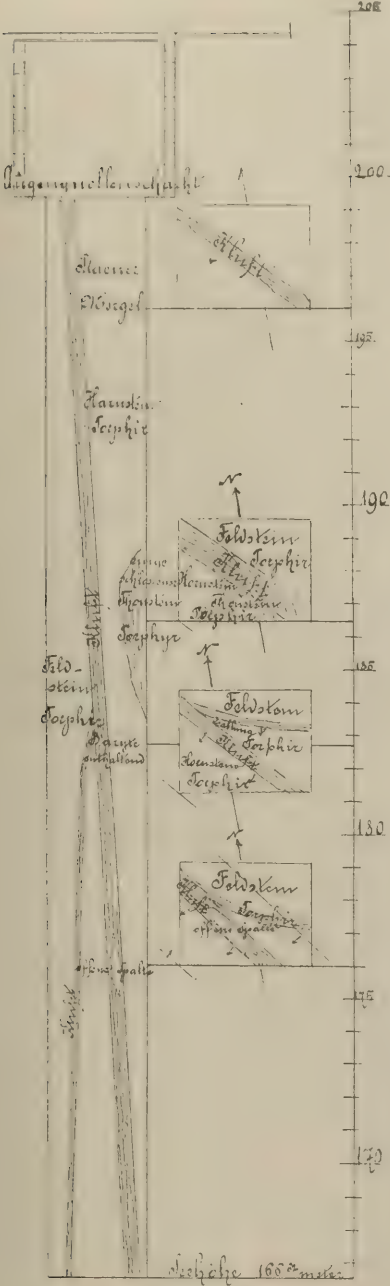 205
200.
Augenquellenschacht
Kluft
Plaener
Mergel
195.
Hornstein
Porphir
190
N
Feldstein
Porphir
Kluft
Hornstein
Porphir
Kluft
Porphyr
185
Feld-
stein
Porphir
N
Feldstein
Porphir
Kluft
Hornstein
Porphir
Baryte
enthaltend
180
N
Feldstein
Kluft
Porphir
offene Spalte
offene Spalte
175
Kluft
170
Seehöhe
meter